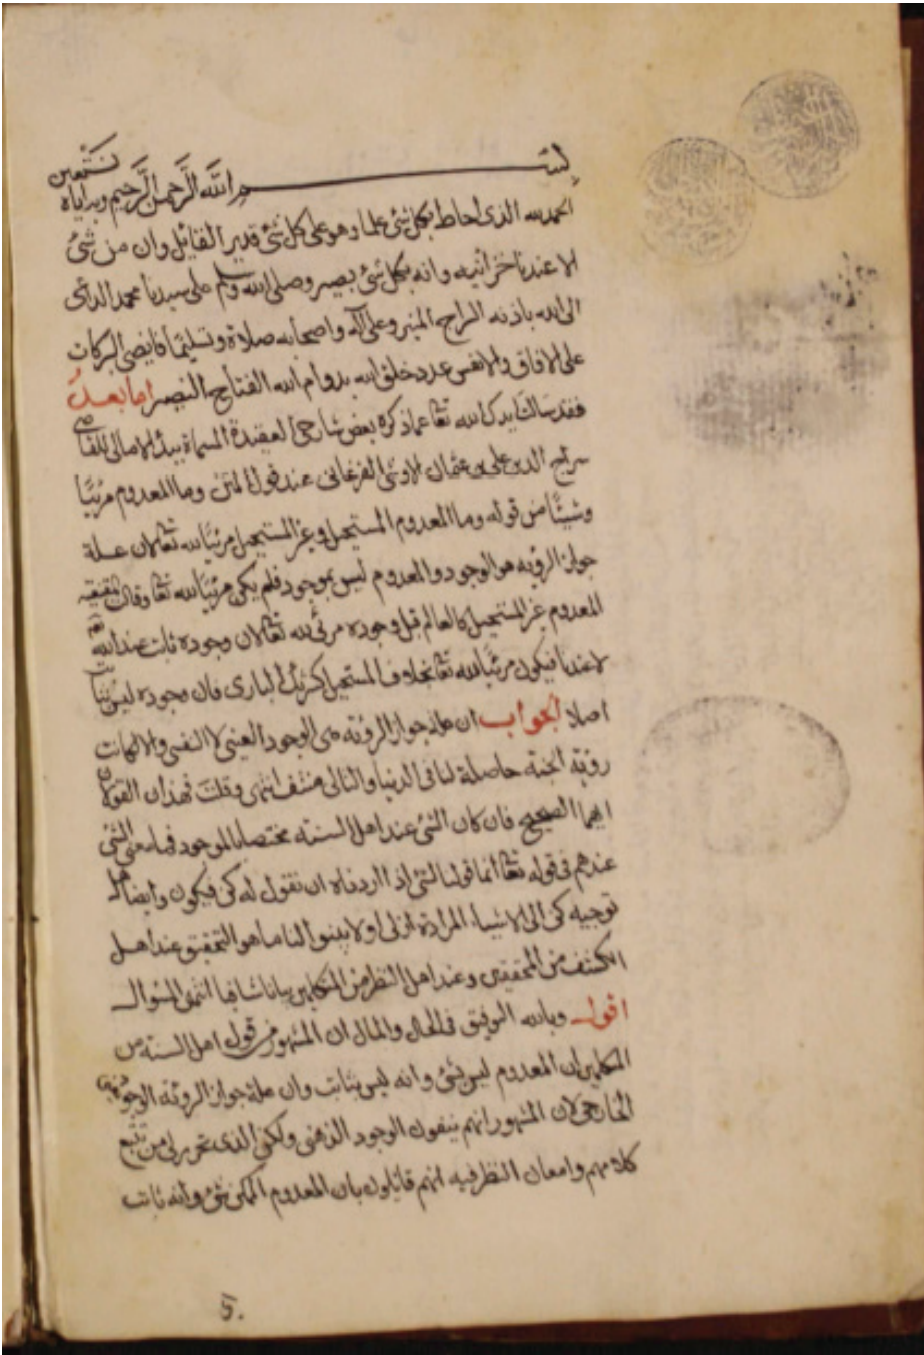 بسم الله الرحمن الرحيم وبه اياه نستعين
الحمد لله الذى احاط بكل شئ علما وهو على كل شئ قدير القائل وان من شئ
الا عندنا خزائنه وانه بكل شئ بصير وصلى الله وسلم على سيدنا محمد الداعى
الى الله باذنه السراج المنير وعلى آله واصحابه صلاة وتسليما فايضى البركات
على الافاق والانفس عدد خلق الله بدوام الله الفتاح النصير اما بعد
فقد سالت ايدك الله تعا عما ذكره بعض شارحى العقيدة المسماة ببدء الامالى للقاضى
سراج الدين على بن عثمان الاوشى الفرغانى عند قول المتن وما المعدوم مرئيا
وشيئا من قوله وما المعدوم المستحيل وغير المستحيل مرئيا لله تعا لان علة
جواز الرؤية هو الوجود والمعدوم ليس بموجود فلم يكن مرئيا لله تعا وقال
المعدوم غير المستحيل كالعالم قبل وجوده مرئى لله تعا لان وجوده ثابت عند الله
لا عندنا فيكون مرئيا لله تعا بخلاف المستحيل كشريك البارى فان وجوده ليس ثابتا
اصلا الجواب ان علة جواز الرؤية هى الوجود العينى لا النفسى والا لكانت
رؤية الجنة حاصلة لنا فى الدنيا والتالى منتف انتهى وقلت فهذان القولان
ايهما الصحيح فان كان الشئ عند اهل السنة مختصا بالموجود فما معنى الشئ
عندهم فى قوله تعا انما قولنا لشئ اذا اردناه ان نقول له كن فيكون وايضا هل
توجيه كن الى الاشياء المرادة ازلى او لا بينوا لنا ما هو التحقيق عند اهل
الكشف من المحققين وعند اهل النظر من المتكلمين بيانا شافيا انتهى السؤال
اقول وبالله التوفيق فى الحال والمال ان المشهور من قول اهل السنة من
المتكلمين ان المعدوم ليس بشئ وانه ليس بثابت وان علة جواز الرؤية الوجود
الخارجى لان المشهور انهم ينفون الوجود الذهنى ولكن الذى تحرر لى من تتبع
كلامهم وامعان النظر فيه انهم قائلون بان المعدوم الممكن شئ وانه ثابت
5.